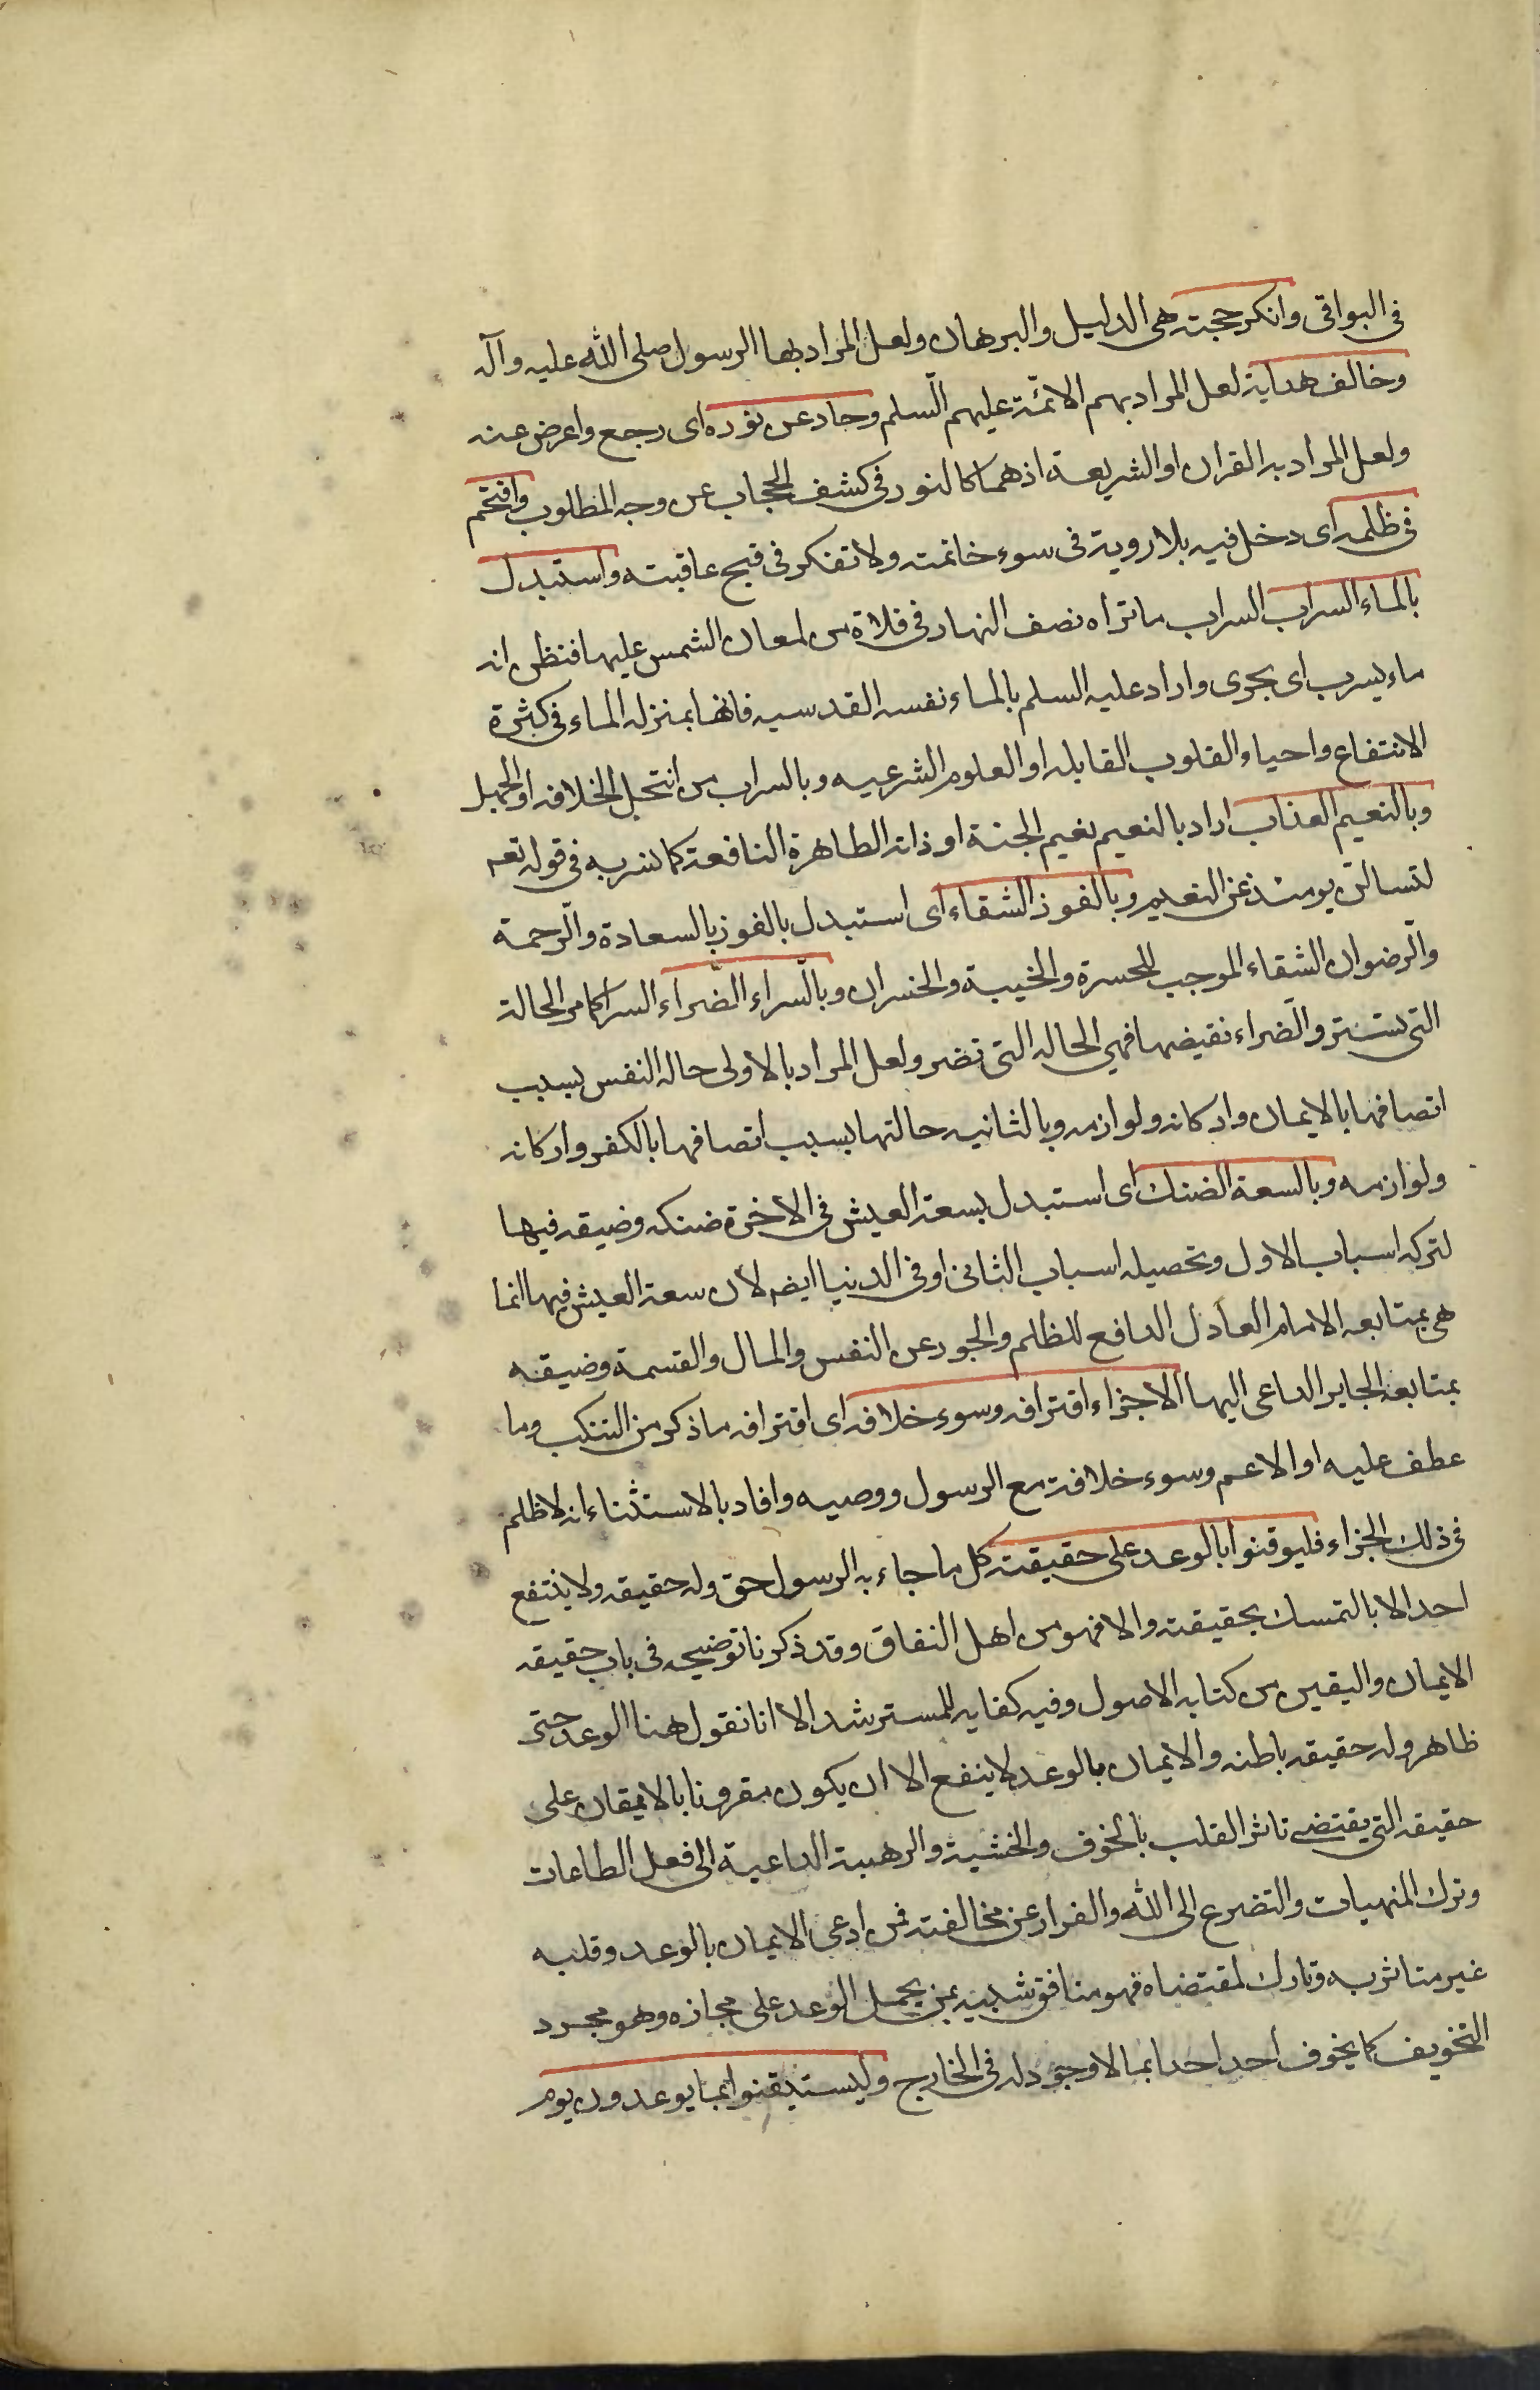 فى البواقى وانكر حجته هى الدليل والبرهان ولعل المراد بها الرسول صلى الله عليه وآله
وخالف هداية لعل المراد بهم الائمّة عليهم السّلم وحاد عن نوره اى رجع واعرض عنه
ولعل المراد به القران او الشريعة اذ هما كالنور فى كشف الحجاب عن وجه المطلوب واقتحم
فى ظلمه اى دخل فيه بلا روية فى سوء خاتمته ولا تفكر فى قبح عاقبته واستبدل
بالماء السراب السراب ما تراه نصف النهار فى فلاة من لمعان الشمس عليها فتظن انه
ماء يسرب اى يجرى واراد عليه السلم بالماء نفسه القدسيه فانها بمنزله الماء فى كثرة
الانتفاع واحياء القلوب القابله او العلوم الشرعيه وبالسراب من انتحل الخلافه او الجهل
وبالنعيم العذاب اراد بالنعيم نعيم الجنة او ذاته الطاهرة النافعة كما فسر به فى قوله تعه
لتسالن يومئذ عن النعيم وبالفوز الشقاء اى استبدل بالفوز بالسعادة والرّحمة
والرّضوان الشقاء الموجب للحسرة والخيبة والخسران وبالسّراء الضّراء السراء كامر الحالة
التى تستر والضّراء نقيضها فهى الحاله التى تضر ولعل المراد بالاولى حاله النفس بسبب
اتصافها بالايمان واركانه ولوازمه وبالثانيه حالتها بسبب اتصافها بالكفر واركانه
ولوازمه وبالسعة الضنك اى استبدل بسعة العيش فى الاخرة ضنكه وضيقه فيها
لتركه اسباب الاول وتحصيله اسباب الثانى او فى الدنيا ايضه لان سعة العيش فيها انما
هى بمتابعه الامام العادل الدافع للظلم والجور عن النفس والمال والقسمة وضيقه
بمتابعة الجاير الداعى اليها الا جزاء اقترافه وسوء خلافه اى اقترافه ما ذكر من التنكب وما
عطف عليه او الاعم وسوء خلافته مع الرسول ووصيه وافاد بالاستثناء انه لا ظلم
فى ذلك الجزاء فليوقنوا بالوعد على حقيقته كل ما جاء به الرسول حق وله حقيقه ولا ينتفع
احد الا بالتمسك بحقيقته والا فهو من اهل النفاق وقد ذكرنا توضيحه فى باب حقيقه
الايمان واليقين من كتابه الاصول وفيه كفايه للمسترشد الا انا نقول هنا الوعد حق
ظاهر وله حقيقه باطنه والايمان بالوعد لا ينفع الا ان يكون مقرونا بالايقان على
حقيقه التى يقتضى تاثر القلب بالخوف والخشية والرهبة الداعية الى فعل الطاعات
وترك المنهيات والتضرع الى الله والفرار عن مخالفته فمن ادعى الايمان بالوعد وقلبه
غير متاثر به وتارك لمقتضاه فهو منافق شبيه بمن يحمل الوعد على مجازه وهو مجرد
التخويف كما يخوف احد احدا بما لا وجود له فى الخارج وليستيقنوا بما يوعدون يوم